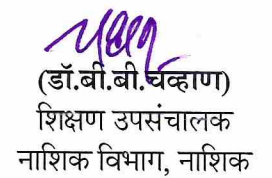 (डॉ.बी.बी.चव्हाण)
शिक्षण उपसंचालक
नाशिक विभाग, नाशिक